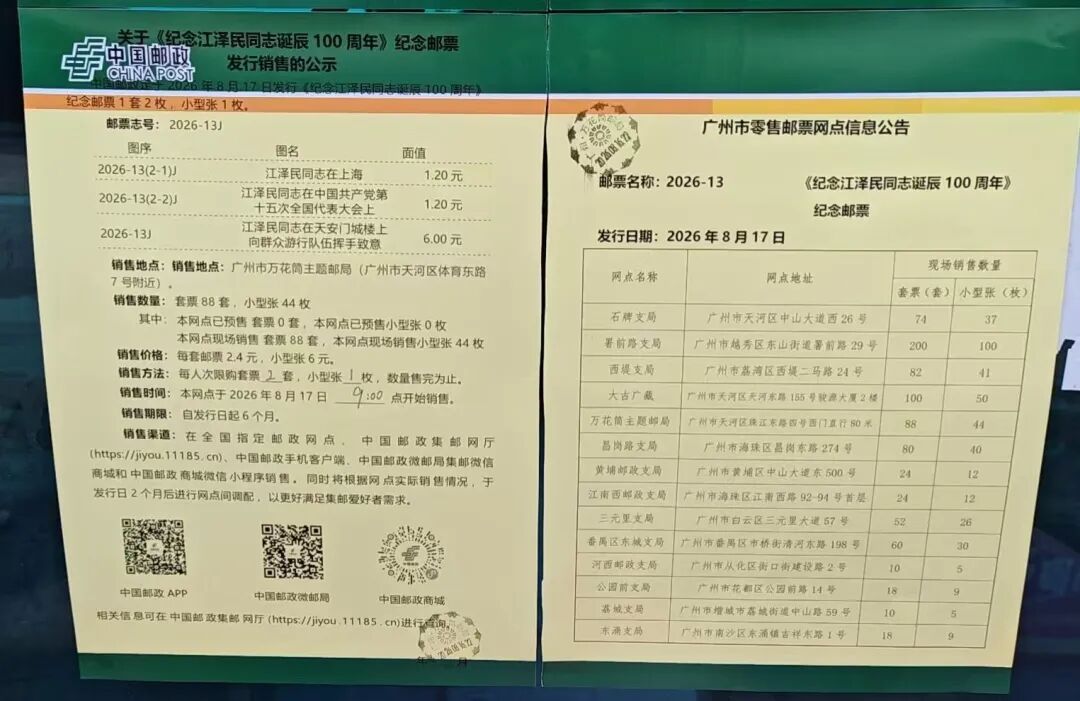 中国邮政
CHINA POST
关于《纪念江泽民同志诞辰 100 周年》纪念邮票
发行销售的公示
中国邮政定于 2026 年 8 月 17 日发行《纪念江泽民同志诞辰 100 周年》
纪念邮票 1 套 2 枚，小型张 1 枚。
邮票志号： 2026-13J
图序 图名 面值
2026-13(2-1)J 江泽民同志在上海 1.20 元
2026-13(2-2)J 江泽民同志在中国共产党第
十五次全国代表大会上 1.20 元
2026-13J 江泽民同志在天安门城楼上
向群众游行队伍挥手致意 6.00 元
销售地点：销售地点：广州市万花筒主题邮局（广州市天河区体育东路
7 号附近）。
销售数量： 套票 88 套，小型张 44 枚
其中： 本网点已预售 套票 0 套，本网点已预售小型张 0 枚
本网点现场销售 套票 88 套，本网点现场销售小型张 44 枚
销售价格： 每套邮票 2.4 元，小型张 6 元。
销售方法： 每人次限购套票 2 套，小型张 1 枚，数量售完为止。
销售时间： 本网点于 2026 年 8 月 17 日 9:00 点开始销售。
销售期限： 自发行日起 6 个月。
销售渠道：在全国指定邮政网点、中国邮政集邮网厅
(https://jiyou.11185.cn)、中国邮政手机客户端、中国邮政微邮局集邮微信
商城和中国邮政商城微信小程序销售。同时将根据网点实际销售情况，于
发行日 2 个月后进行网点间调配，以更好满足集邮爱好者需求。
中国邮政 APP 中国邮政微邮局 中国邮政商城
相关信息可在中国邮政集邮网厅 (https://jiyou.11185.cn)进行查询。
年 月
广州市零售邮票网点信息公告
邮票名称：2026-13 《纪念江泽民同志诞辰 100 周年》
纪念邮票
发行日期：2026 年 8 月 17 日
网点名称 网点地址 现场销售数量
套票（套） 小型张（枚）
石牌支局 广州市天河区中山大道西 26 号 74 37
署前路支局 广州市越秀区东山街道署前路 29 号 200 100
西堤支局 广州市荔湾区西堤二马路 24 号 82 41
大古广藏 广州市天河区天河东路 155 号骏源大厦 2 楼 100 50
万花筒主题邮局 广州市天河区珠江东路四号西门直行 80 米 88 44
昌岗路支局 广州市海珠区昌岗东路 274 号 80 40
黄埔邮政支局 广州市黄埔区中山大道东 500 号 24 12
江南西邮政支局 广州市海珠区江南西路 92-94 号首层 24 12
三元里支局 广州市白云区三元里大道 57 号 52 26
番禺区东城支局 广州市番禺区市桥街清河东路 198 号 60 30
河西邮政支局 广州市从化区街口街建设路 2 号 10 5
公园前支局 广州市花都区公园前路 14 号 18 9
荔城支局 广州市增城市荔城街道中山路 59 号 10 5
东涌支局 广州市南沙区东涌镇吉祥东路 1 号 18 9